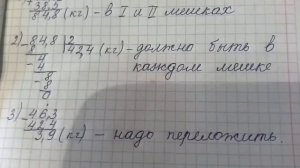 84,8 (кг) - в I и II мешках
2) - 84,8 | 2
8 42,4 (кг) - должно быть в
- 4 каждом мешке
4
- 8
8
0
3) - 46,3
42,4
3,9 (кг) - надо переложить.